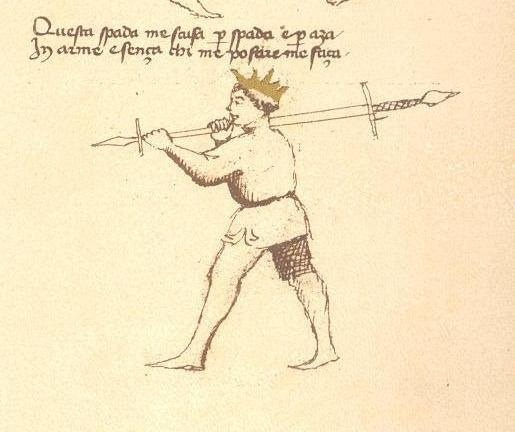 Questa spada me scusa p spada e p aza
In arme e sença chi me po fare me faça